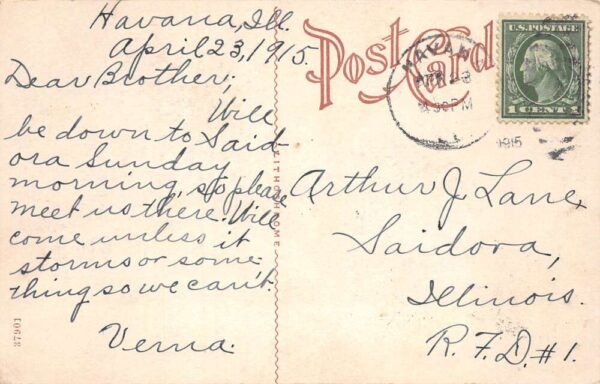 Havana, Ill.
April 23, 1915.
Dear Brother;
Will
be down to Said-
ora Sunday
morning, so please
meet us there. Will
come unless it
storms or some-
thing so we can't.
Verna.
37901
Post Card
HAVANA
APR 23
30 PM
1915
U.S. POSTAGE
1 CENT 1
Arthur J. Lane,
Saidora,
Illinois.
R.F.D. #1.